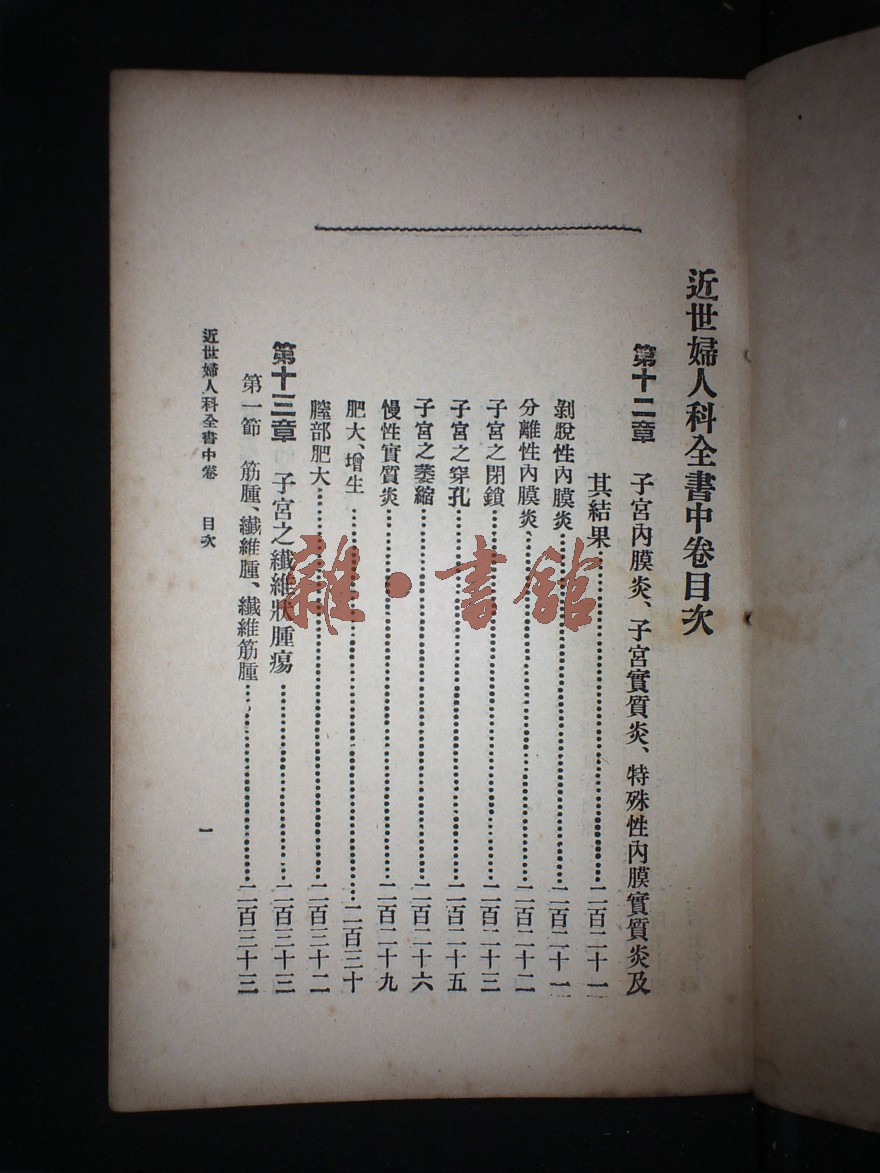 近世婦人科全書中卷目次
第十二章 子宮內膜炎、子宮實質炎、特殊性內膜實質炎及
其結果……二百二十一
剝脫性內膜炎……二百二十一
分離性內膜炎……二百二十二
子宮之閉鎖……二百二十三
子宮之穿孔……二百二十五
子宮之萎縮……二百二十六
慢性實質炎……二百二十九
肥大、增生……二百三十
膣部肥大……二百三十二
第十三章 子宮之纖維狀腫瘍……二百三十三
第一節 筋腫、纖維腫、纖維筋腫……二百三十三
近世婦人科全書中卷 目次 一
雜·書館